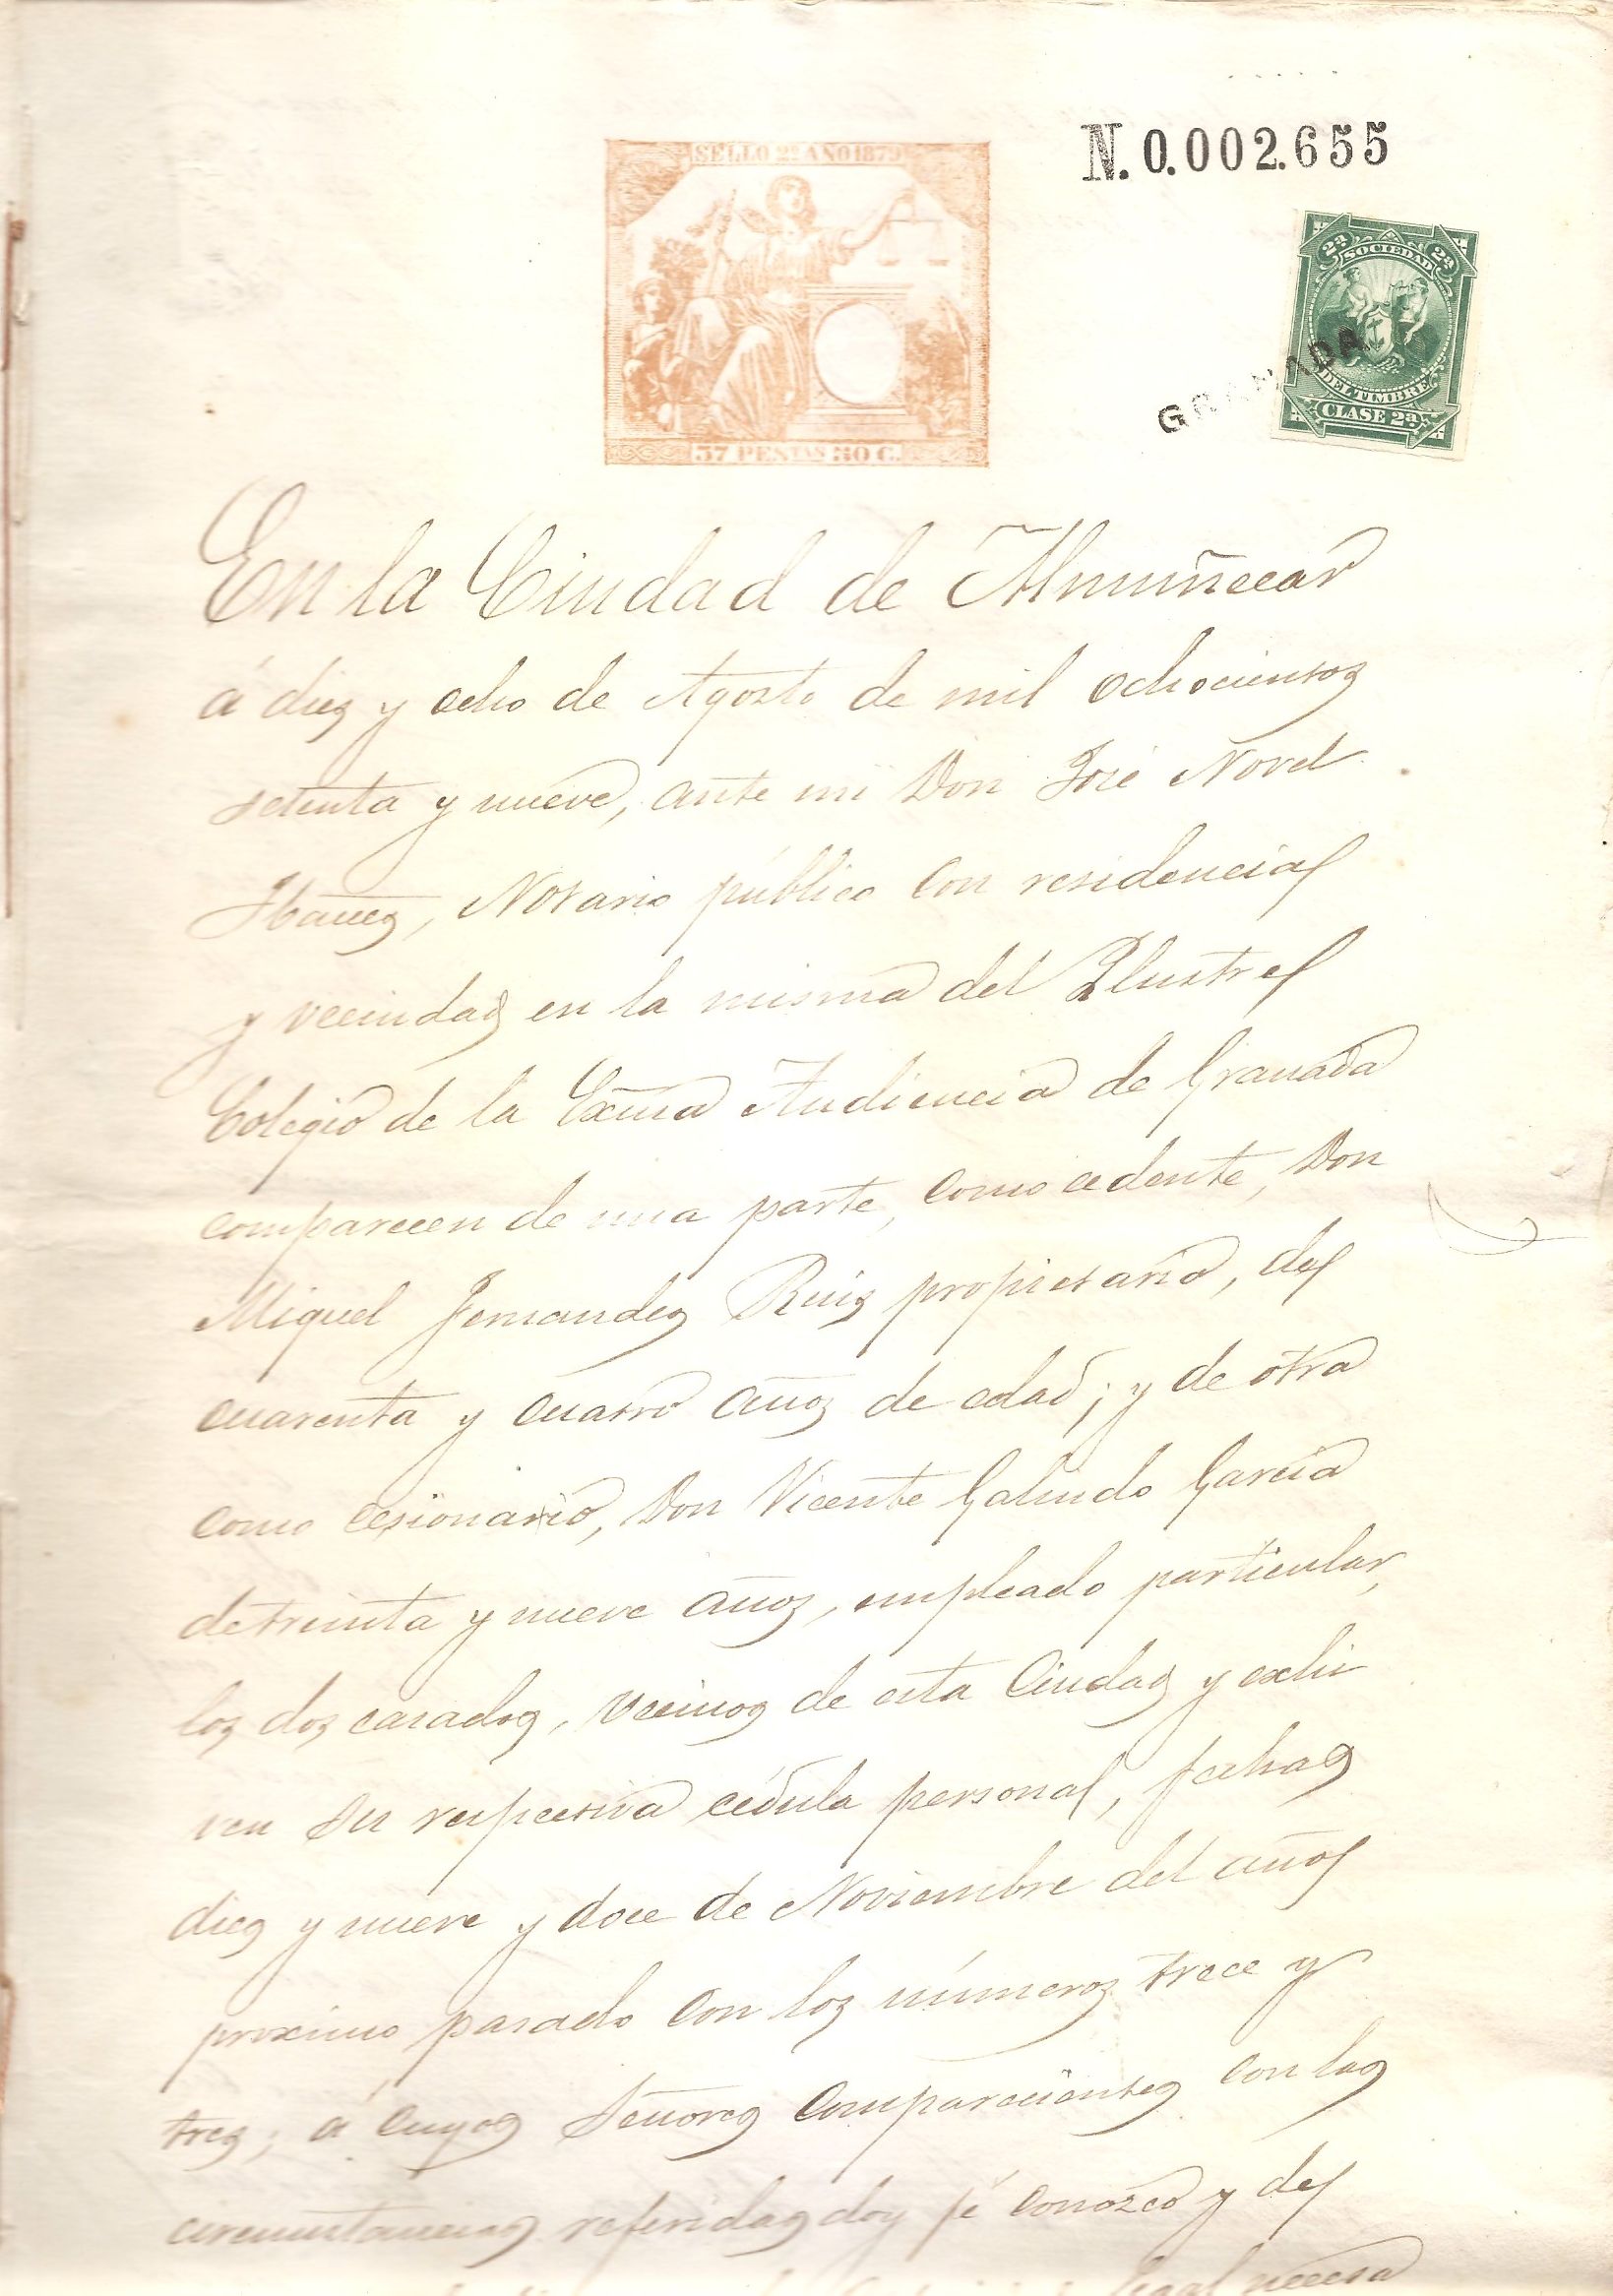 SELLO 2º AÑO 1879
N. 0.002.655
2ª 2ª
SOCIEDAD
DEL TIMBRE
CLASE 2ª
GRANADA
37 PESTAS 50 C.
En la Ciudad de Almuñecar
á diez y ocho de Agosto de mil ochocientos
setenta y nueve, ante mi Don José Novel
Ibañez, Notario público con residencia
y vecindad en la misma del Ilustre
Colegio de la Exma Audiencia de Granada
comparecen de una parte, como cedente, Don
Miguel Fernandez Ruiz propietario, de
cuarenta y cuatro años de edad; y de otra
como cesionario, Don Vicente Galindo Garcia
de treinta y nueve años, empleado particular,
los dos casados, vecinos de esta Ciudad y exhi
ven su respectiva cédula personal, fechas
diez y nueve y doce de Noviembre del año
proximo pasado con los números trece y
tres; á cuyos Señores comparecientes con las
circunstancias referidas doy fé conozco y de
legal necesa